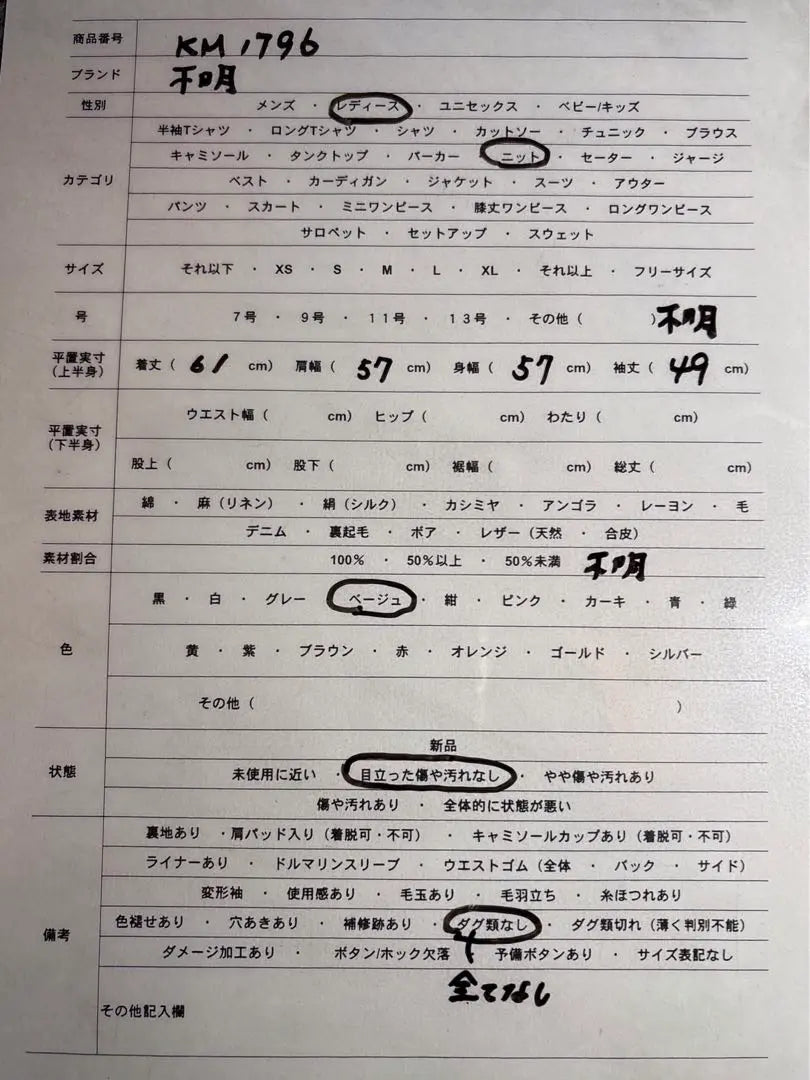 商品番号 KM1796
ブランド 不明
性別 メンズ ・ レディース ・ ユニセックス ・ ベビー/キッズ
半袖Tシャツ ・ ロングTシャツ ・ シャツ ・ カットソー ・ チュニック ・ ブラウス
キャミソール ・ タンクトップ ・ パーカー ・ ニット ・ セーター ・ ジャージ
カテゴリ ベスト ・ カーディガン ・ ジャケット ・ スーツ ・ アウター
パンツ ・ スカート ・ ミニワンピース ・ 膝丈ワンピース ・ ロングワンピース
サロペット ・ セットアップ ・ スウェット
サイズ それ以下 ・ XS ・ S ・ M ・ L ・ XL ・ それ以上 ・ フリーサイズ
号 7号 ・ 9号 ・ 11号 ・ 13号 ・ その他 ( ) 不明
平置実寸
(上半身) 着丈 ( 61 cm) 肩幅 ( 57 cm) 身幅 ( 57 cm) 袖丈 ( 49 cm)
ウエスト幅 ( cm) ヒップ ( cm) わたり ( cm)
平置実寸
(下半身)
股上 ( cm) 股下 ( cm) 裾幅 ( cm) 総丈 ( cm)
綿 ・ 麻 (リネン) ・ 絹 (シルク) ・ カシミヤ ・ アンゴラ ・ レーヨン ・ 毛
表地素材
デニム ・ 裏起毛 ・ ボア ・ レザー (天然 ・ 合皮)
素材割合 100% ・ 50%以上 ・ 50%未満 不明
黒 ・ 白 ・ グレー ・ ベージュ ・ 紺 ・ ピンク ・ カーキ ・ 青 ・ 緑
色 黄 ・ 紫 ・ ブラウン ・ 赤 ・ オレンジ ・ ゴールド ・ シルバー
その他 ( )
新品
状態 未使用に近い ・ 目立った傷や汚れなし ・ やや傷や汚れあり
傷や汚れあり ・ 全体的に状態が悪い
裏地あり ・肩パッド入り (着脱可・不可) ・ キャミソールカップあり (着脱可・不可)
ライナーあり ・ ドルマリンスリーブ ・ ウエストゴム (全体 ・ バック ・ サイド)
変形袖 ・ 使用感あり ・ 毛玉あり ・ 毛羽立ち ・ 糸ほつれあり
備考 色褪せあり ・ 穴あきあり ・ 補修跡あり ・ タグ類なし ・ タグ類切れ (薄く判別不能)
ダメージ加工あり ・ ボタン/ホック欠落 ・ 予備ボタンあり ・ サイズ表記なし
全てなし
その他記入欄